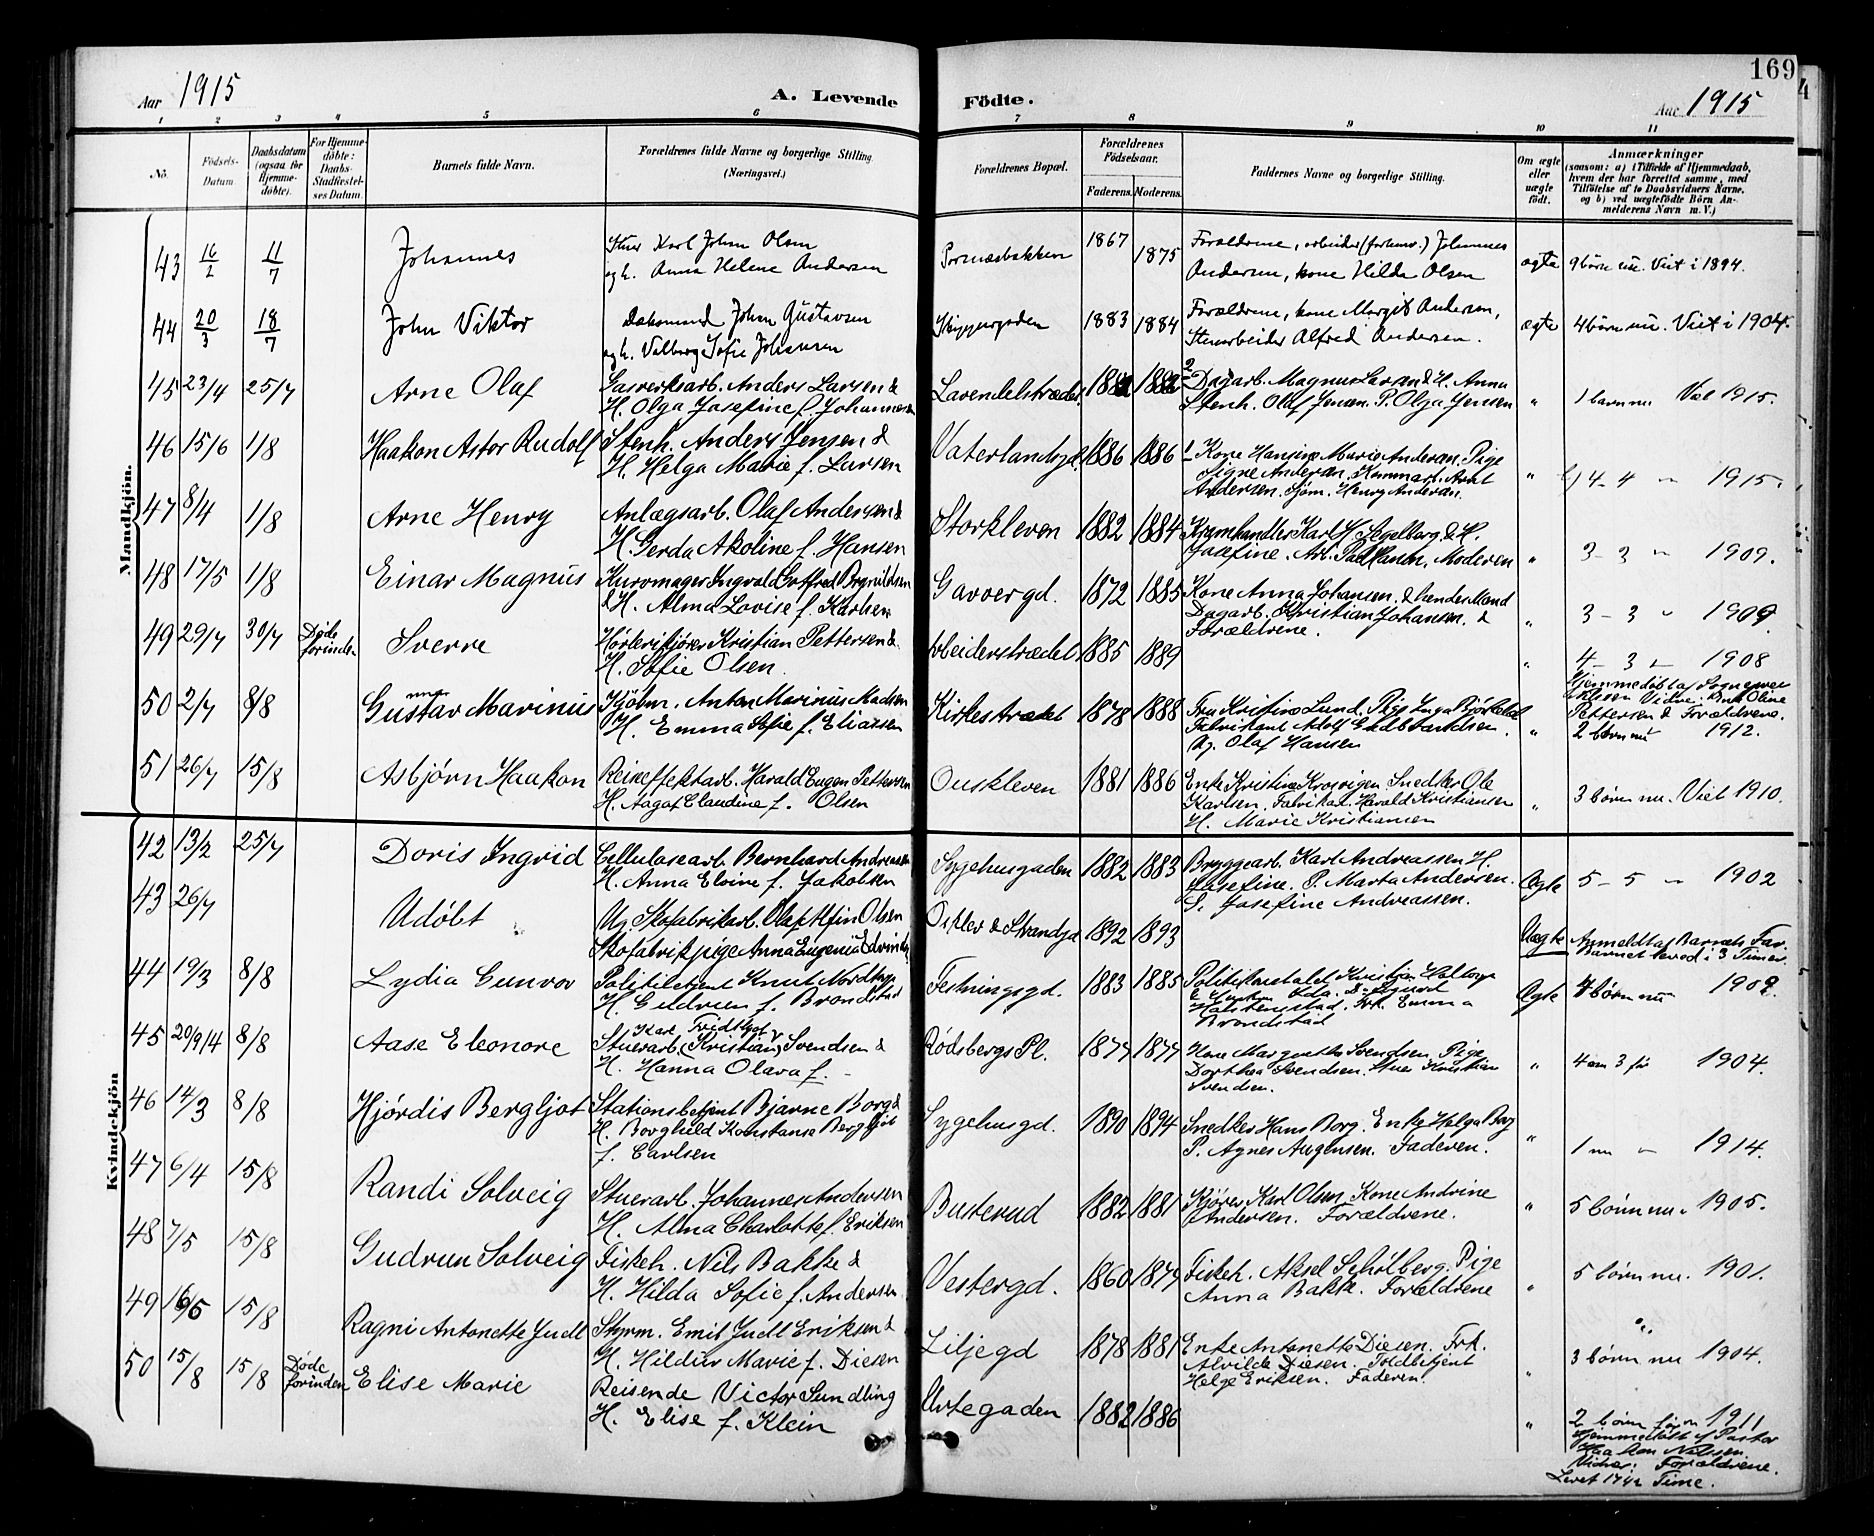 169
Aar 1915
A. Levende Födte.
Aar 1915
1 2 3 4 5 6 7 8 9 10 11
No.
Födsels-Datum.
Daabsdatum (ogsaa for Hjemme-döbte).
For Hjemme-döbte: Daabs-Stadfæstel-ses Datum.
Barnets fulde Navn.
Forældrenes fulde Navne og borgerlige Stilling (Næringsvei.)
Forældrenes Bopæl.
Forældrenes Födselsaar.
Faderens. Moderens.
Faddernes Navne og borgerlige Stilling.
Om ægte eller uægte födt.
Anmærkninger
(saasom: a) i Tilfælde af Hjemmedaab, hvem der har forrettet samme, med Tilföielse af to Daabsvidners Navne, og b) ved uægtefödte Börn An-melderens Navn m. V.)
Mandkjön.
43 16/2 11/7 Johannes
Karl Johan Olsen
og h. Anna Helene Andersen
1867 1875
Forældrene, arbeider (forhenv.) Johannes
Andersen, kone Hilda Olsen
ægte 9 børn nu. Viet i 1894.
44 20/3 18/7 John Viktor
Johan Gustavsen
og h. Valborg Sofie Johansen
1883 1884
Forældrene, kone Margit Andersen,
Stenarbeider Alfred Andersen.
ægte 4 børn nu. Viet i 1904.
45 23/4 25/7 Arne Olaf
Gasverksarb. Anders Larsen &
H. Olga Josefine f. Johannesen
Lavendelstrædet
Dagarb. Magnus Larsen & H. Anna
Stenh. Olaf Jensen. P. Olga Jensen
" 1 barn nu Viet 1915.
46 15/6 1/8 Haakon Astor Rudolf
Stenh. Anders Jensen &
H. Helga Marie f. Larsen
Vaterlandsgd. 1886 1886
Kone Hansine Marie Andersen. Pige
Signe Andersen.
Andersen. Sjøm. Henry Andersen.
" 4 - 4 " 1915.
47 8/4 1/8 Arne Henry
Anlægsarb. Olaf Andersen &
H. Gerda Akoline f. Hansen
Storkleven 1882 1884
Kramhandler Karl H. Segelberg & H.
Josefine. Arb. Paul Hansen, Moderen
" 3 - 3 " 1909.
48 17/5 1/8 Einar Magnus
Kurvmager Ingvald Gotfred Brynildsen
& H. Alma Lovise f. Karlsen
1872 1885
Kone Anna Johansen.
Dagarb. Kristian Johansen. &
Forældrene.
" 3 - 3 " 1909.
49 29/7 30/7 Døde forinden Sverre
Kristian Pettersen &
H. Sofie Olsen.
Arbeiderstrædet 1885 1889
" 4 - 3 " 1908
Hjemmedøbt af Sogneprest
Pettersen & Forældrene.
50 2/7 8/8 Gunnar Gustav Marinus
Kjøbm. Anton Marinus Madsen
H. Emma Sofie f. Eliassen
Kirkestrædet 1878 1888
Fru Kristine Lund. Pige Inga Bjørkelid
Fabrikant Adolf Guldbrandsen.
Ug. Olaf Hansen
" 2 børn nu 1912.
51 26/7 15/8 Asbjørn Haakon
Harald Eugen Pettersen
H. Aagot Claudine f. Olsen
Ouskleven 1881 1886
Enke Kristine Krosvigen Snedker Ole
Karlsen. Fabrikar. Harald Kristiansen
H. Marie Kristiansen
" 3 børn nu. Viet 1910.
Kvindekjön
42 13/2 25/7 Doris Ingrid
Cellulosearb. Bernhard Andreassen
H. Anna Elvine f. Jakobsen
Sygehusgaden 1882 1883
Bryggearb. Karl Andreassen H.
Josefine. P. Marta Andersen.
S. Josefine Andreassen.
Ægte 5 - 5 " 1902
43 26/7 Udøbt
Ug. Skofabrikarb. Olaf Olsen
Skofabrikpige Anna Eugenie
1892 1893
Uægte Anmeldt af Barnets Far.
Barnet levede i 3 Timer.
44 19/3 8/8 Lydia Gunvor
Politibetjent Knut Nordhagen
H. Gudrun f. Brondstad
Festningsgd. 1883 1885
Politikonstabel Kristian
Frk. Emma
Brondstad
Ægte børn nu
45 20/9 14 8/8 Aase Eleonore
Karl Fridtjof
Stuerarb. (Kristian) Svendsen &
H. Hanna Olava f. -
Rødsbergs Pl. 1877 1877
Kone Margrethe Svendsen. Pige
Dorthea Svendsen. Stuer Kristian
Svendsen.
" 4 om 3 før 1904.
46 14/3 8/8 Hjørdis Bergljot
Stationsbetjent Bjarne Borg &
H. Borghild Konstanse Bergljot
f. Carlsen
Sygehusgd. 1890 1894
Snedker Hans Borg. Enke Helga Borg
P. Agnes Augensen. Faderen.
" 1 nu " 1914.
47 6/4 15/8 Randi Solveig
Stuerarb. Johannes Andersen
H. Alma Charlotte f. Eriksen
Busterud 1882 1881
Kjører Karl Olsen Kone Andrine
Andersen. Forældrene.
" 5 børn nu. 1905.
48 7/5 15/8 Gudrun Solveig
Fiskeh. Nils Bakke &
H. Hilda Sofie f. Andersen
Vestergd. 1860 1879
Fiskeh. Aksel Schølberg. Pige
Anna Bakke. Forældrene
" 5 børn nu. 1901.
49 16/5 15/8 Ragni Antonette Juell
Styrm. Emil Juell Eriksen &
H. Hildur Marie f. Diesen
Liljegd 1878 1881
Enke Antonette Diesen. Frk.
Alvilde Diesen. Toldbetjent
Helge Eriksen. Faderen.
" 3 børn nu 1904.
50 15/8 15/8 Døde forinden Elise Marie
Reisende Victor Sundling
H. Elise f. Klein
Urtegaden 1882 1886
" 2 børn før 1911
Hjemmedøbt af Pastor
Haakon Nilssen.
Vidner: Forældrene.
Levet 17 1/2 Time.